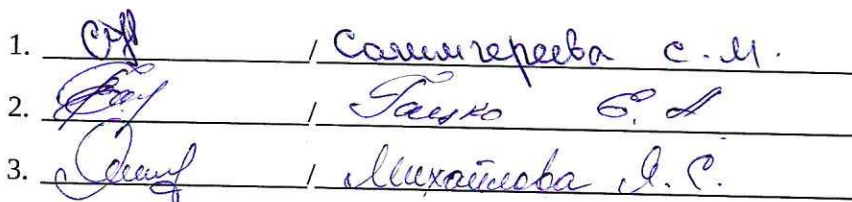 1. / Салимгереева С.М.
2. / Гацко Е.А
3. / Михайлова Я.С.